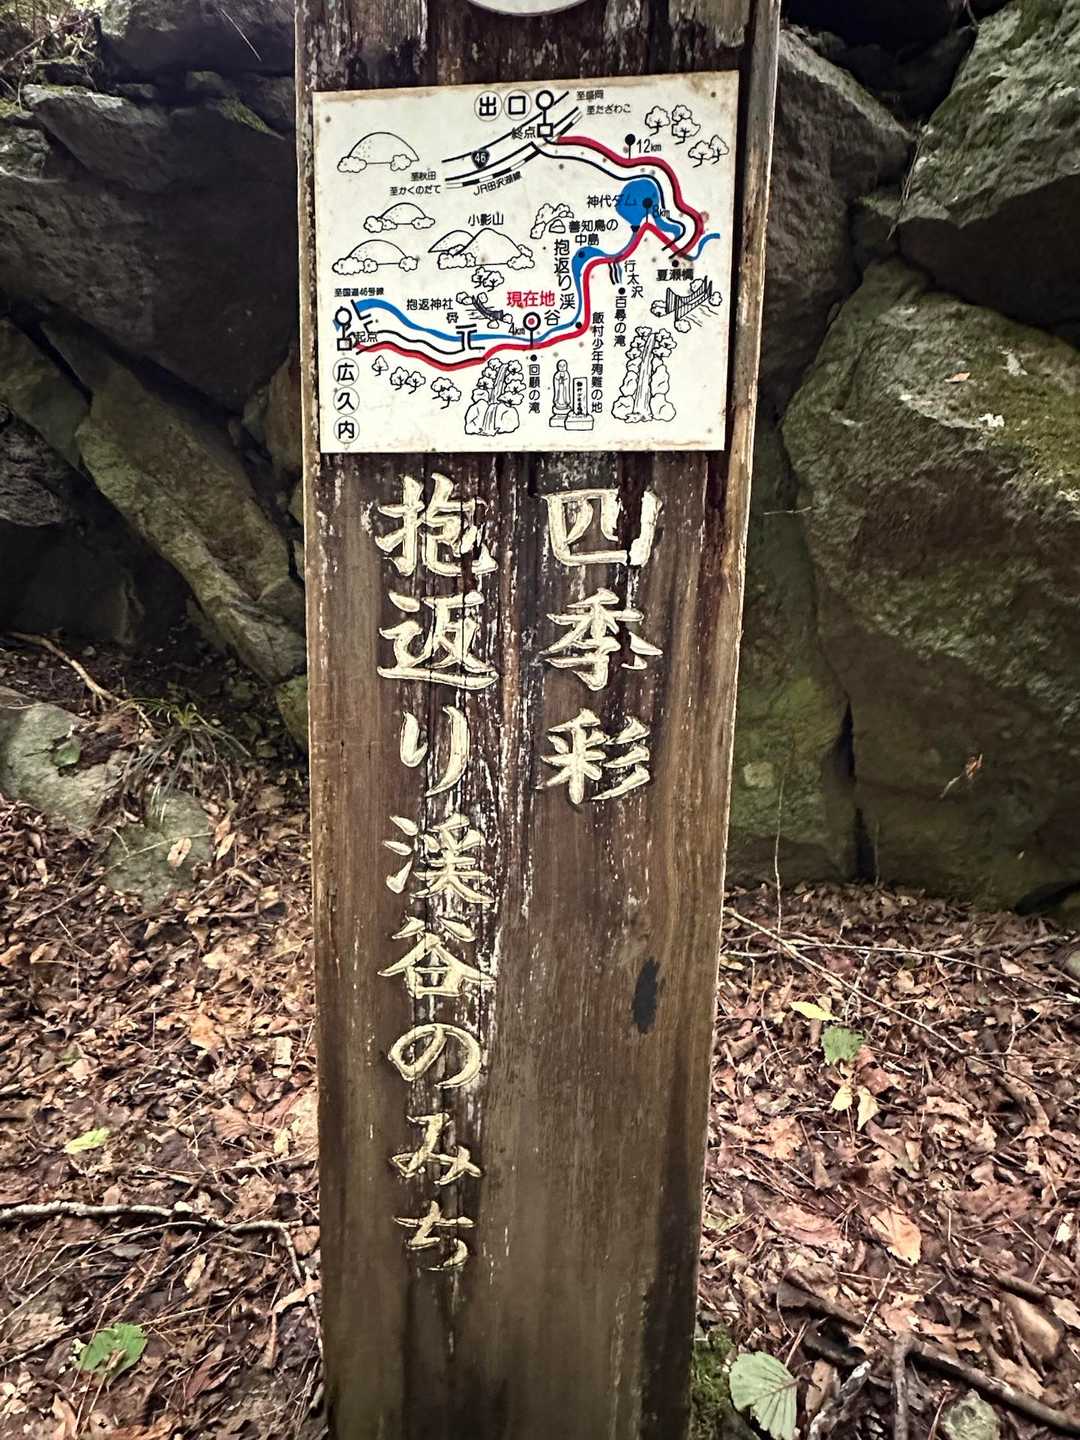 出口
至盛岡
至たざわこ
終点
12km
46
至秋田
至かくのだて
JR田沢湖線
神代ダム
8km
小影山
善知鳥の
中島
抱返り渓谷
行太沢
夏瀬橋
至国道46号線
抱返神社
現在地
4km
起点
百尋の滝
飯村少年殉難の地
回顧の滝
広久内
四季彩
抱返り渓谷のみち